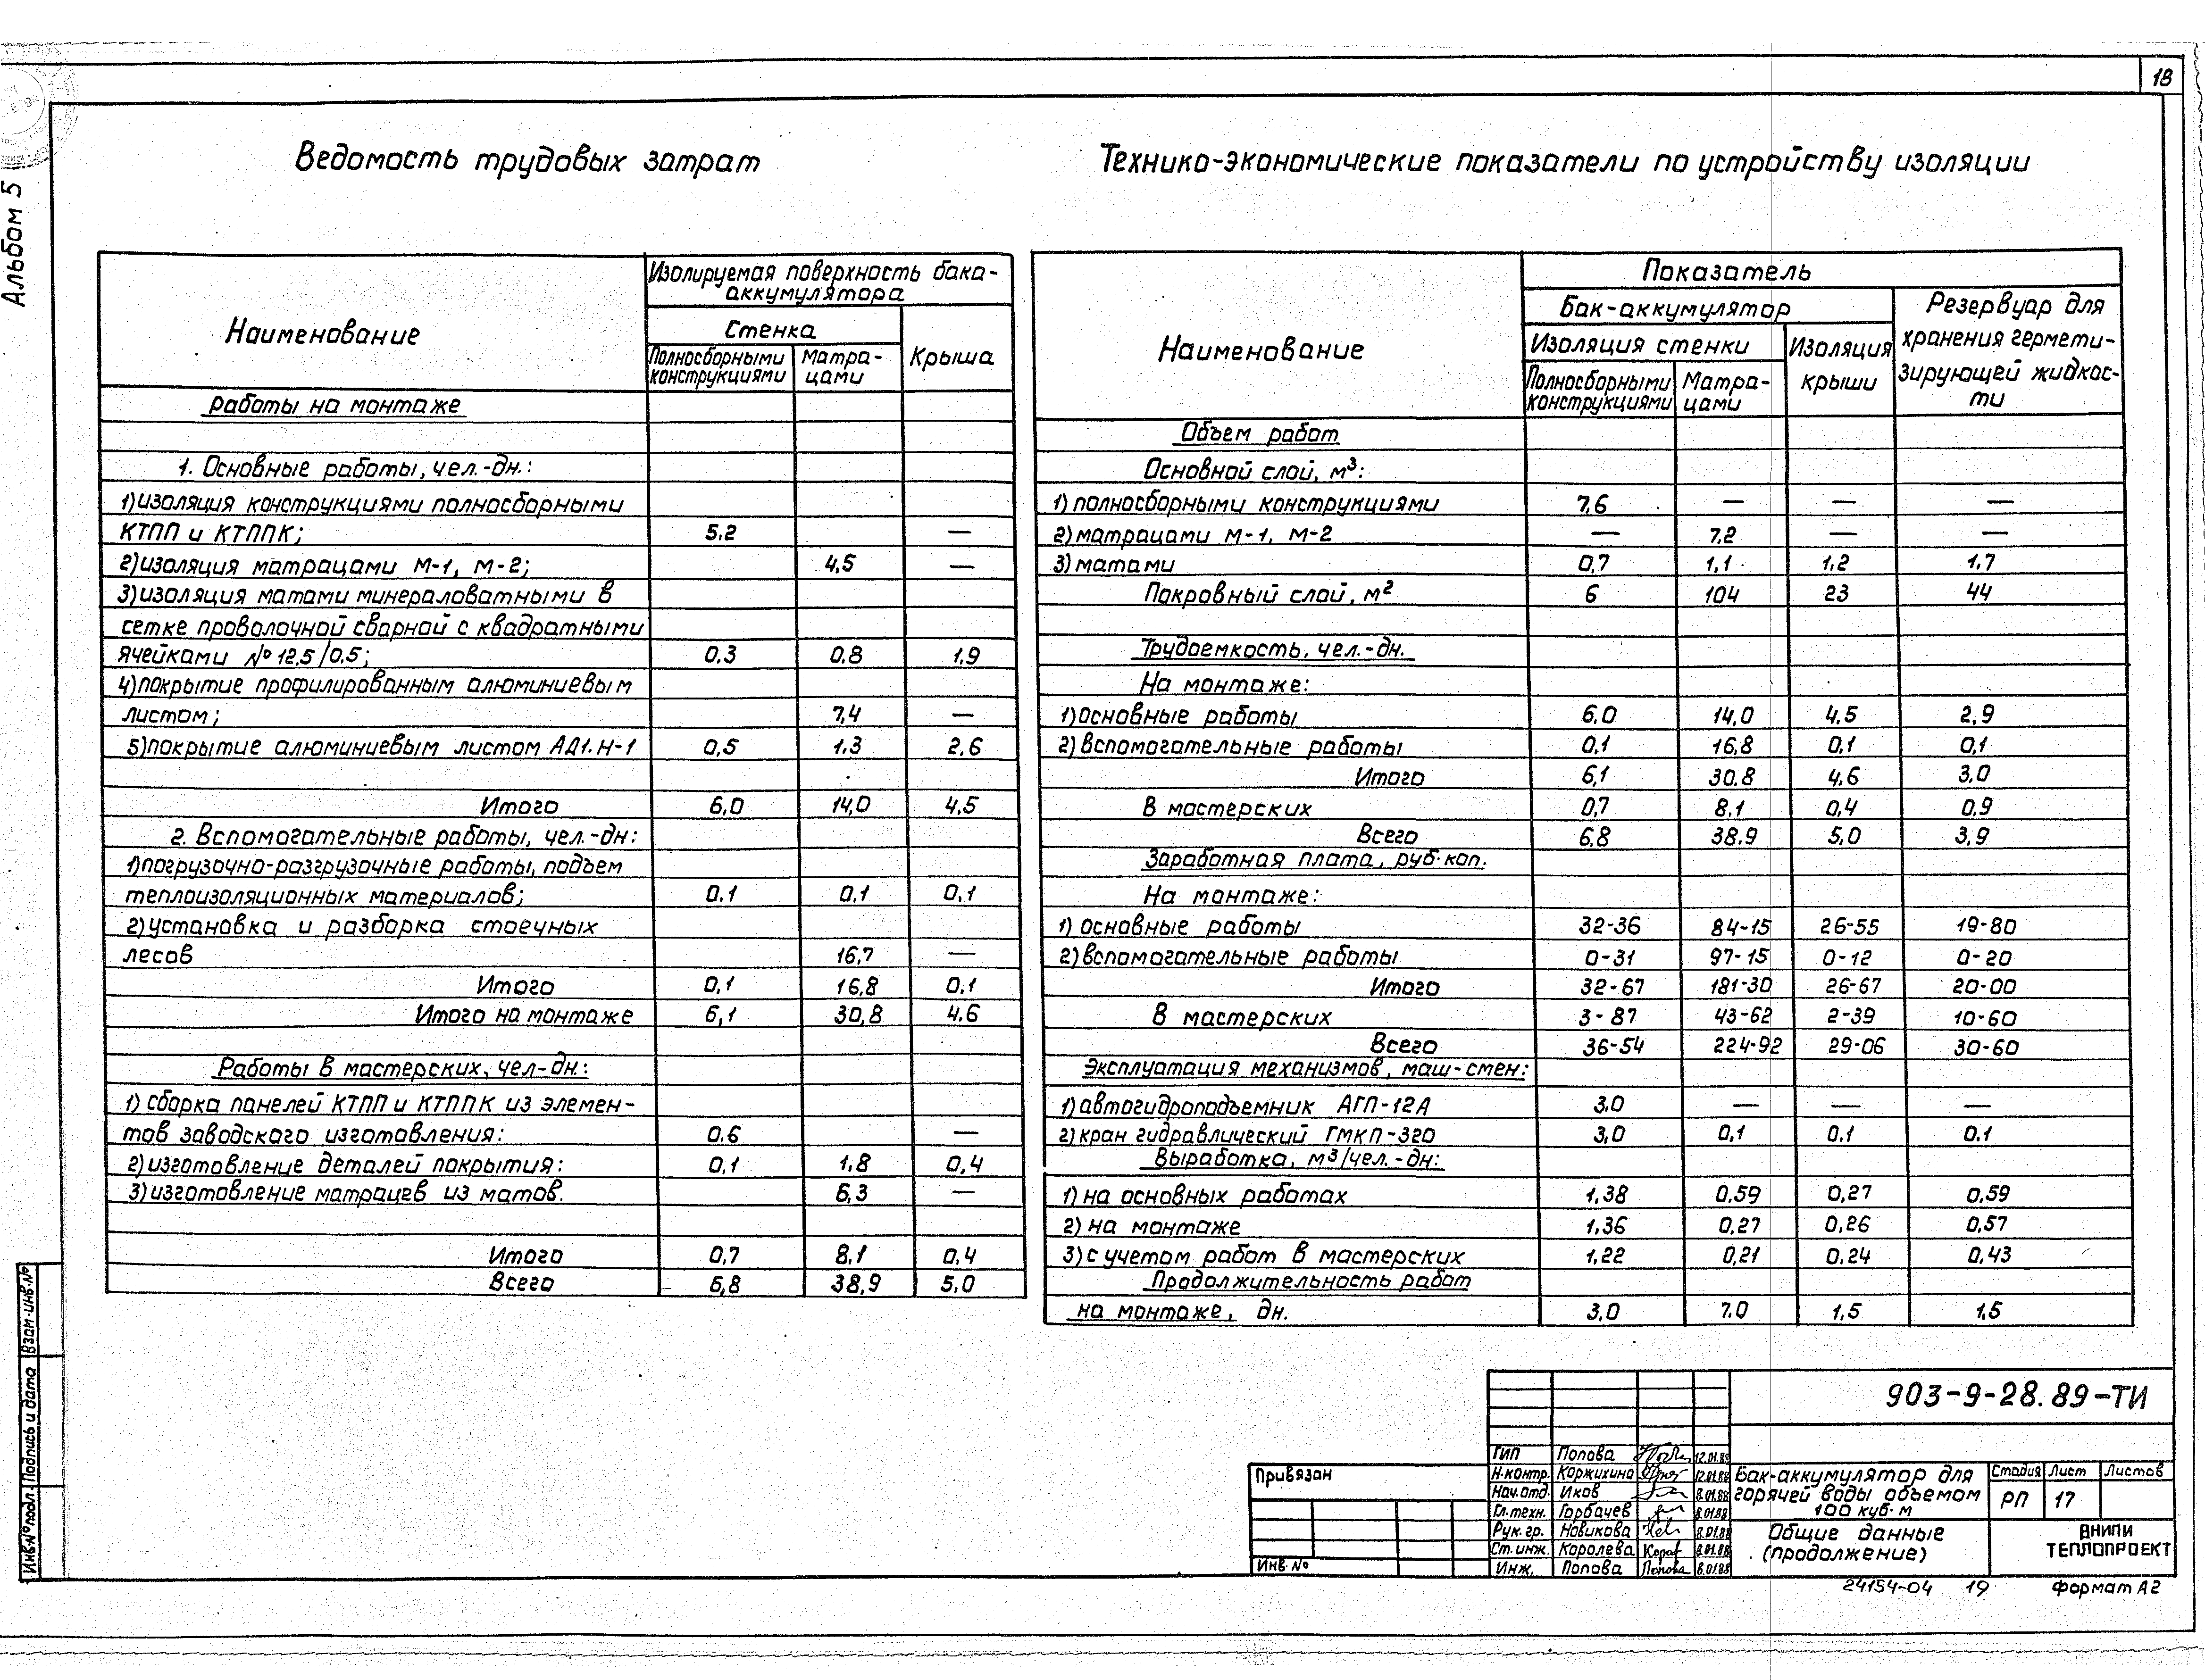 18
Альбом 5
Ведомость трудовых затрат
Наименование
Изолируемая поверхность бака-
аккумулятора
Стенка
Крыша
Полносборными
конструкциями
Матра-
цами
Работы на монтаже
1. Основные работы, чел.-дн.:
1) изоляция конструкциями полносборными
КТПП и КТППК; 5.2 —
2) изоляция матрацами М-1, М-2; 4,5 —
3) изоляция матами минераловатными в
сетке проволочной сварной с квадратными
ячейками №12,5/0,5; 0,3 0,8 1,9
4) покрытие профилированным алюминиевым
листом; 7,4 —
5) покрытие алюминиевым листом АД1.Н-1 0,5 1.3 2,6
Итого 6,0 14,0 4,5
2. Вспомогательные работы, чел.-дн:
1) погрузочно-разгрузочные работы, подъем
теплоизоляционных материалов; 0.1 0,1 0,1
2) установка и разборка стоечных
лесов 16,7 —
Итого 0,1 16,8 0.1
Итого на монтаже 6,1 30,8 4.6
Работы в мастерских, чел-дн:
1) сборка панелей КТПП и КТППК из элемен-
тов заводского изготовления: 0.6 —
2) изготовление деталей покрытия: 0,1 1,8 0,4
3) изготовление матрацев из матов. 6,3 —
Итого 0,7 8,1 0,4
Всего 6,8 38,9 5,0
Технико-экономические показатели по устройству изоляции
Наименование
Показатель
Бак-аккумулятор
Резервуар для
хранения гермети-
зирующей жидкос-
ти
Изоляция стенки
Изоляция
крыши
Полносборными
конструкциями
Матра-
цами
Объем работ
Основной слой, м³:
1) полносборными конструкциями 7,6 — — —
2) матрацами М-1, М-2 — 7,2 — —
3) матами 0,7 1,1 1,2 1,7
Покровный слой, м² 6 104 23 44
Трудоемкость, чел.-дн.
На монтаже:
1) основные работы 6,0 14,0 4,5 2,9
2) вспомогательные работы 0,1 16,8 0,1 0,1
Итого 6,1 30.8 4,6 3,0
В мастерских 0,7 8.1 0,4 0,9
Всего 6,8 38.9 5,0 3,9
Заработная плата, руб.коп.
На монтаже:
1) основные работы 32-36 84-15 26-55 19-80
2) вспомогательные работы 0-31 97-15 0-12 0-20
Итого 32-67 181-30 26-67 20-00
В мастерских 3-87 43-62 2-39 10-60
Всего 36-54 224-92 29-06 30-60
Эксплуатация механизмов, маш-смен:
1) автогидроподъемник АГП-12А 3.0 — — —
2) кран гидравлический ГМКП-320 3,0 0,1 0.1 0.1
Выработка, м³/чел.-дн:
1) на основных работах 1,38 0,59 0,27 0,59
2) на монтаже 1,36 0,27 0,26 0,57
3) с учетом работ в мастерских 1,22 0,21 0,24 0,43
Продолжительность работ
на монтаже, дн. 3,0 7.0 1,5 1,5
903-9-28.89-ТИ
ГИП Попова 12.01.89
Н.контр. Коржихина 12.01.88
Нач.отд. Иков 8.01.88
Гл.техн. Горбачев 8.01.88
Рук.гр. Новикова 8.01.88
Ст.инж. Королева 8.01.88
Инж. Попова Попова 8.01.88
Бак-аккумулятор для
горячей воды объемом
100 куб.м
Стадия Лист Листов
РП 17
Общие данные
(продолжение)
ВНИПИ
ТЕПЛОПРОЕКТ
Привязан
Инв.№
24154-04 19 формат А2
Взам.инв.№
Подпись и дата
Инв.№ подл.